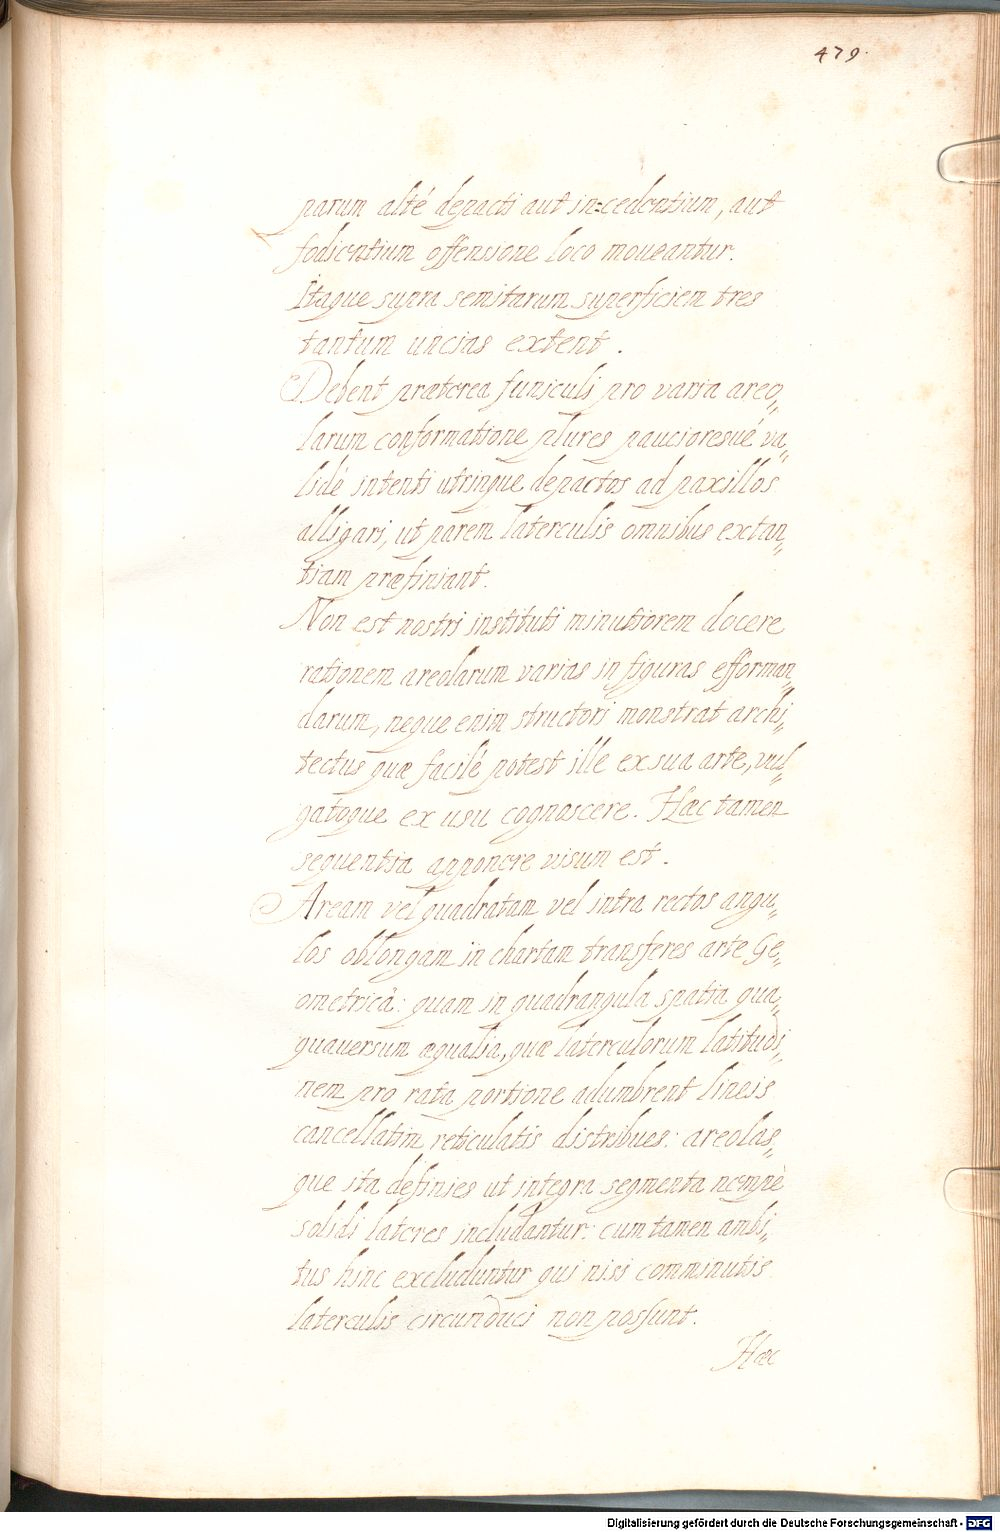 479.
parum altè depacti aut in=cedentium, aut
fodientium offensione loco moueantur.
Itaque supra semitarum superficiem tres
tantum uncias extent.
Debent præterea funiculi pro varia areo„
larum conformatione plures paucioresuè va„
lidè intenti utrinque depactos ad paxillos
alligari, ut parem laterculis omnibus extan„
tiam præfiniant.
Non est nostri instituti minutiorem docere
rationem areolarum varias in figuras efforman„
darum, neque enim structori monstrat archi„
tectus quæ facilè potest ille ex sua arte, vul„
gatoque ex usu cognoscere. Hæc tamen
sequentia apponere visum est.
Aream vel quadratam vel intra rectos angu„
los oblongam in chartam transferes arte Ge„
ometricâ: quam in quadrangula spatia qua„
quauersum æqualia, quæ laterculorum latitudi„
nem pro rata portione adumbrent lineis
cancellatim reticulatis distribues: areolas„
que ita definies ut integra segmenta nempè
solidi lateres includantur: cum tamen ambi„
tus hinc excluduntur qui nisi comminutis
laterculis circumduci non possunt.
Hæc
Digitalisierung gefördert durch die Deutsche Forschungsgemeinschaft - DFG